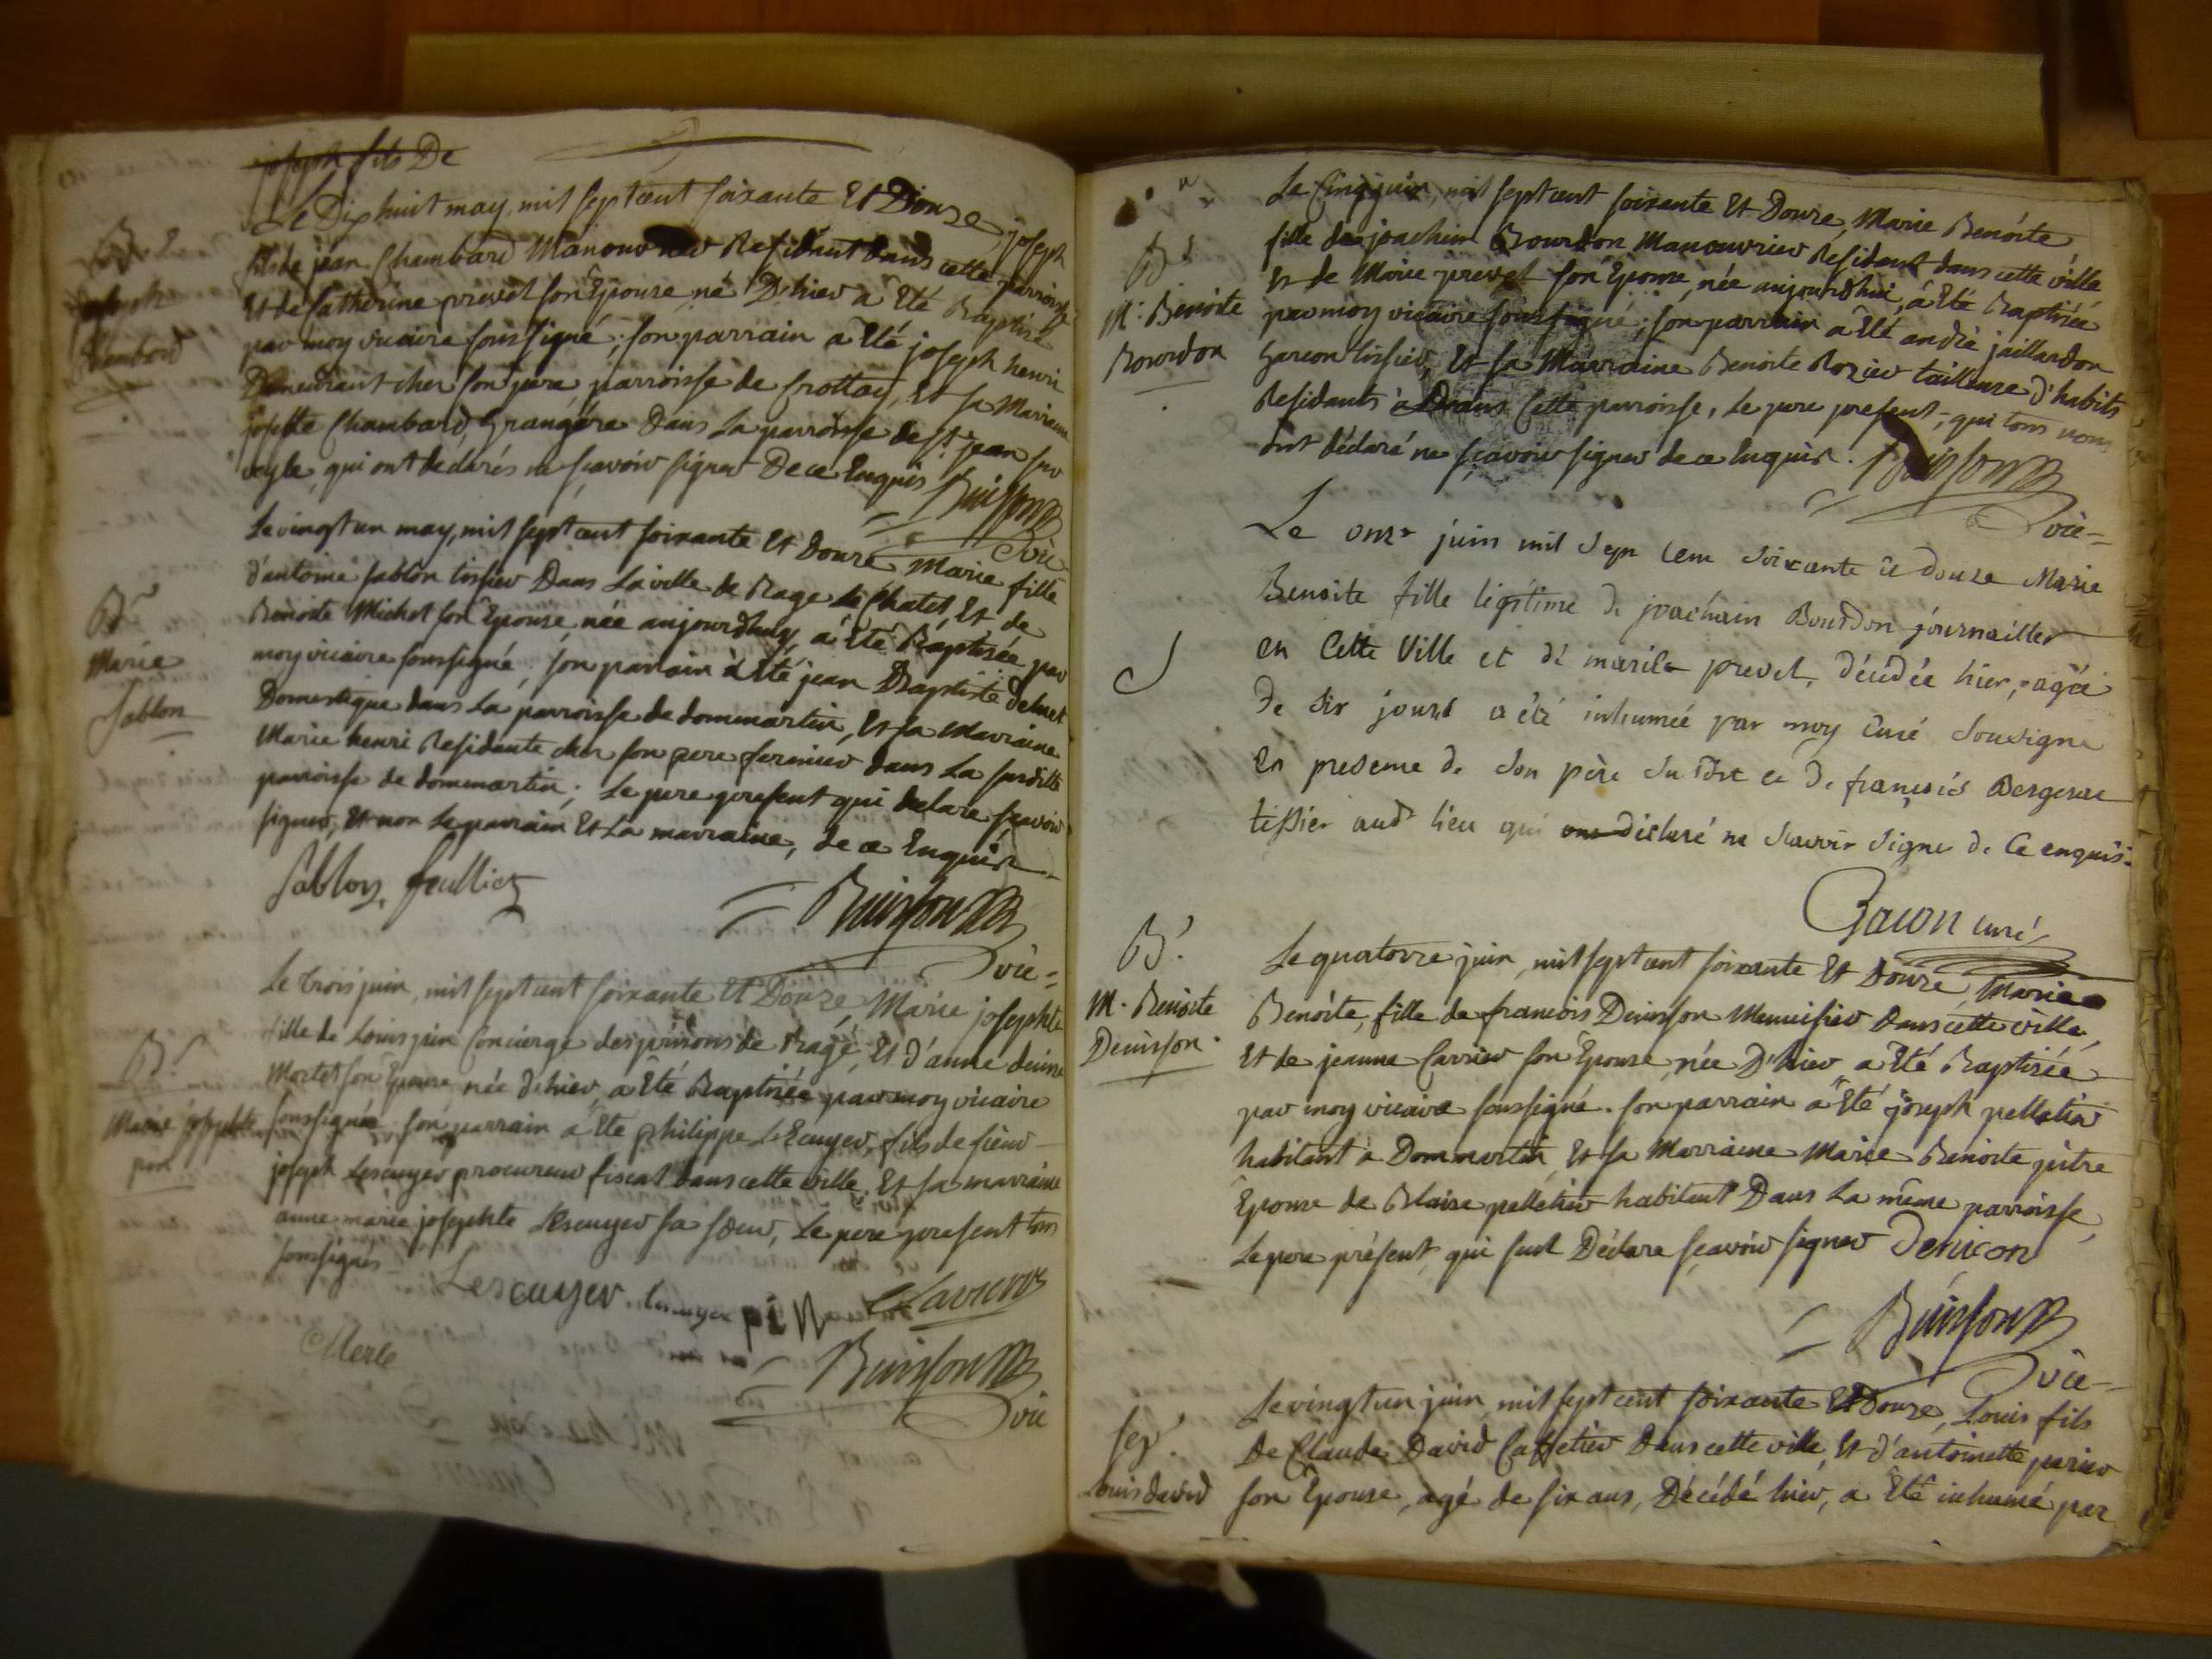 joseph fils De
Le Dix huit may, mil sept cent soixante Et Douze, joseph
fils de jéan Chambard Manouvrier Residant dans cette parroisse
Et de Catherine prevet son Epouse né D'hier a Eté Baptisé
par moy vicaire soussigné; son parrain a Eté joseph henri
Demeurant chez son pere, parroisse de Crottay, Et sa Marraine
josette Chambard Grangére Dans La parroisse de St. jean sur
veyle, qui ont declarés ne sçavoir signer De ce Enquis
Buisson
vic=
Bs.
joseph
Chambard
Le vingt un may, mil sept cent soixante Et Douze Marie fille
d'antoine sablon tissier Dans La ville de Bagé Le Chatel, Et de
Benoite Michel son Epouse née aujourdhuy, a Eté Baptisée par
moy vicaire soussigné; son parrain a Eté jean Baptiste
Domestique dans La parroisse de dommartin, Et sa Marraine
Marie henri Residante chez son pere fermier dans La susditte
parroisse de dommartin; Le pere present qui declare sçavoir
signer, Et non Le parrain Et La marraine, de ce Enquis.
Sablon, feulliet
Buisson
vic=
Bs
Marie
Sablon
Le trois juin, mil sept cent soixante Et Douze, Marie josephte
fille de Louis pin Concierge des prisons de Bagé, Et d'anne
Mortel son Epouse née d'hier, a Eté Baptisée par moy vicaire
soussigné. son parrain a Eté philippe LEcuyer, fils de sieur
joseph Lescuyer procureur fiscal dans cette ville. Et sa marraine
anne marie josephte Lescuyer sa sœur, Le pere present tous
soussignés
Lescuyer Lescuyer pin
Merle
Buisson
vic
Bs
Marie josephte
pin
Le Cinq juin, mil sept cent soixante Et Douze, Marie Benoite
fille de joachim Bourdon Manouvrier Resident dans cette ville
Et de Marie prevet son Epouse, née aujourdhui, a Eté Baptisée
par moy vicaire soussigné; son parrain a Eté andré jaillardon
Garcon tissier, Et sa Marraine Benoite Rozier tailleuse d'habits
Residants Dans Cette parroisse, Le pere present, qui tous nous
ont déclaré ne sçavoir signer de ce Enquis.
Buisson
vic=
Bs
M. Benoite
Bourdon
Le onze juin mil sept cent soixante et douze Marie
Benoite fille legitime de joachim Bourdon journaillier
en Cette Ville et de marie prevet, décédée hier, agée
de six jours a été inhumée par moy Curé Sousigné
en presence de son père susdit et de françois Bergerac
tissier audt lieu qui ont déclaré ne scavoir signer de Ce enquis.
Gacon curé
S
Le quatorze juin, mil sept cent soixante Et Douze, Marie
Benoite, fille de francois Denisson Menuisier Dans cette ville,
Et de jeanne Carrier son Epouse, née D'hier, a Eté Baptisée
par moy vicaire soussigné. son parrain a Eté joseph pelletier
habitant a Dommartin Et sa Marraine Marie Benoite
Epouse de Blaise pelletier habitant Dans La même parroisse,
Le pere présent, qui seul Déclare sçavoir signer Denicon
Buisson
vic=
Bs.
M. Benoite
Denisson
Le vingt un juin, mil sept cent soixante Et Douze, Louis fils
De Claude David Caffetier Dans cette ville, Et d'antoinette
son Epouse, agé de six ans, Décédé hier, a Eté inhumé par
Sep.
Louis david